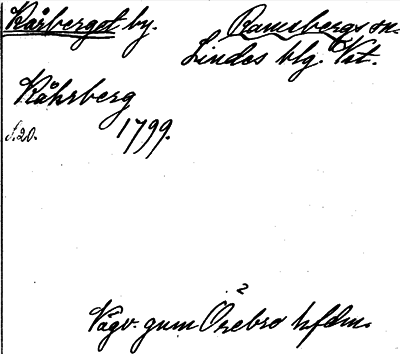 Kårberget by. Ramsbergs sn.
Lindes blg. Vst.
Kåhrberg
s.20. 1799.
2
Vägv. gum Örebro hfdm.